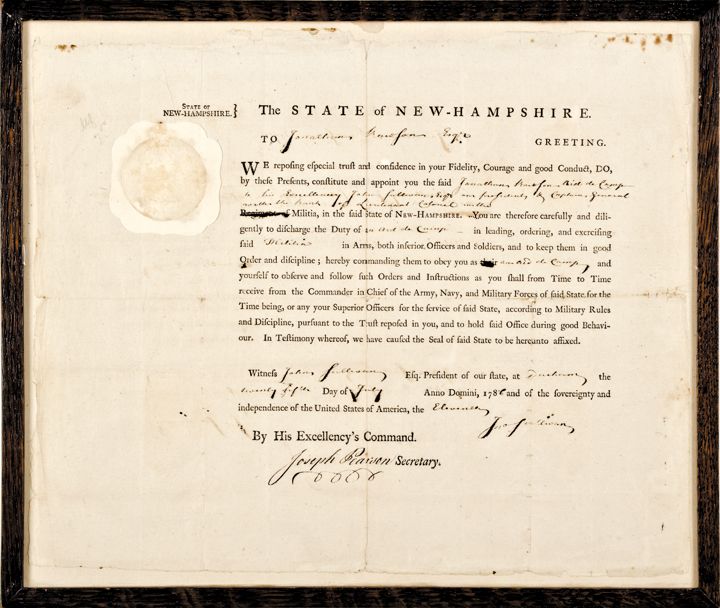 STATE OF
NEW-HAMPSHIRE. }
The STATE of NEW-HAMPSHIRE.
TO Jonathan Rawson Esqr. GREETING.
WE reposing eſpecial truſt and confidence in your Fidelity, Courage and good Conduct, DO,
by theſe Preſents, conſtitute and appoint you the ſaid Jonathan Rawson, Aid de Camp
to his Excellency John Sullivan, Esqr our president, & Captain General
with the Rank of Lieutenant Colonel in the
Regiment of Militia, in the ſaid State of NEW-HAMPSHIRE. You are therefore carefully and dili-
gently to diſcharge the Duty of an Aid de Camp in leading, ordering, and exerciſing
ſaid Militia in Arms, both inferior Officers and Soldiers, and to keep them in good
Order and diſcipline; hereby commanding them to obey you as their an Aid de Camp, and
yourſelf to obſerve and follow ſuch Orders and Inſtructions as you ſhall from Time to Time
receive from the Commander in Chief of the Army, Navy, and Military Forces of ſaid State for the
Time being, or any your Superior Officers for the ſervice of ſaid State, according to Military Rules
and Diſcipline, purſuant to the Truſt repoſed in you, and to hold ſaid Office during good Behavi-
our. In Teſtimony whereof, we have cauſed the Seal of ſaid State to be hereunto affixed.
Witneſs John Sullivan Eſq. Preſident of our ſtate, at Durham the
twenty fifth Day of July Anno Domini, 1786 and of the ſovereignty and
independence of the United States of America, the Eleventh
Jno Sullivan
By His Excellency's Command.
Joseph Pearson Secretary.